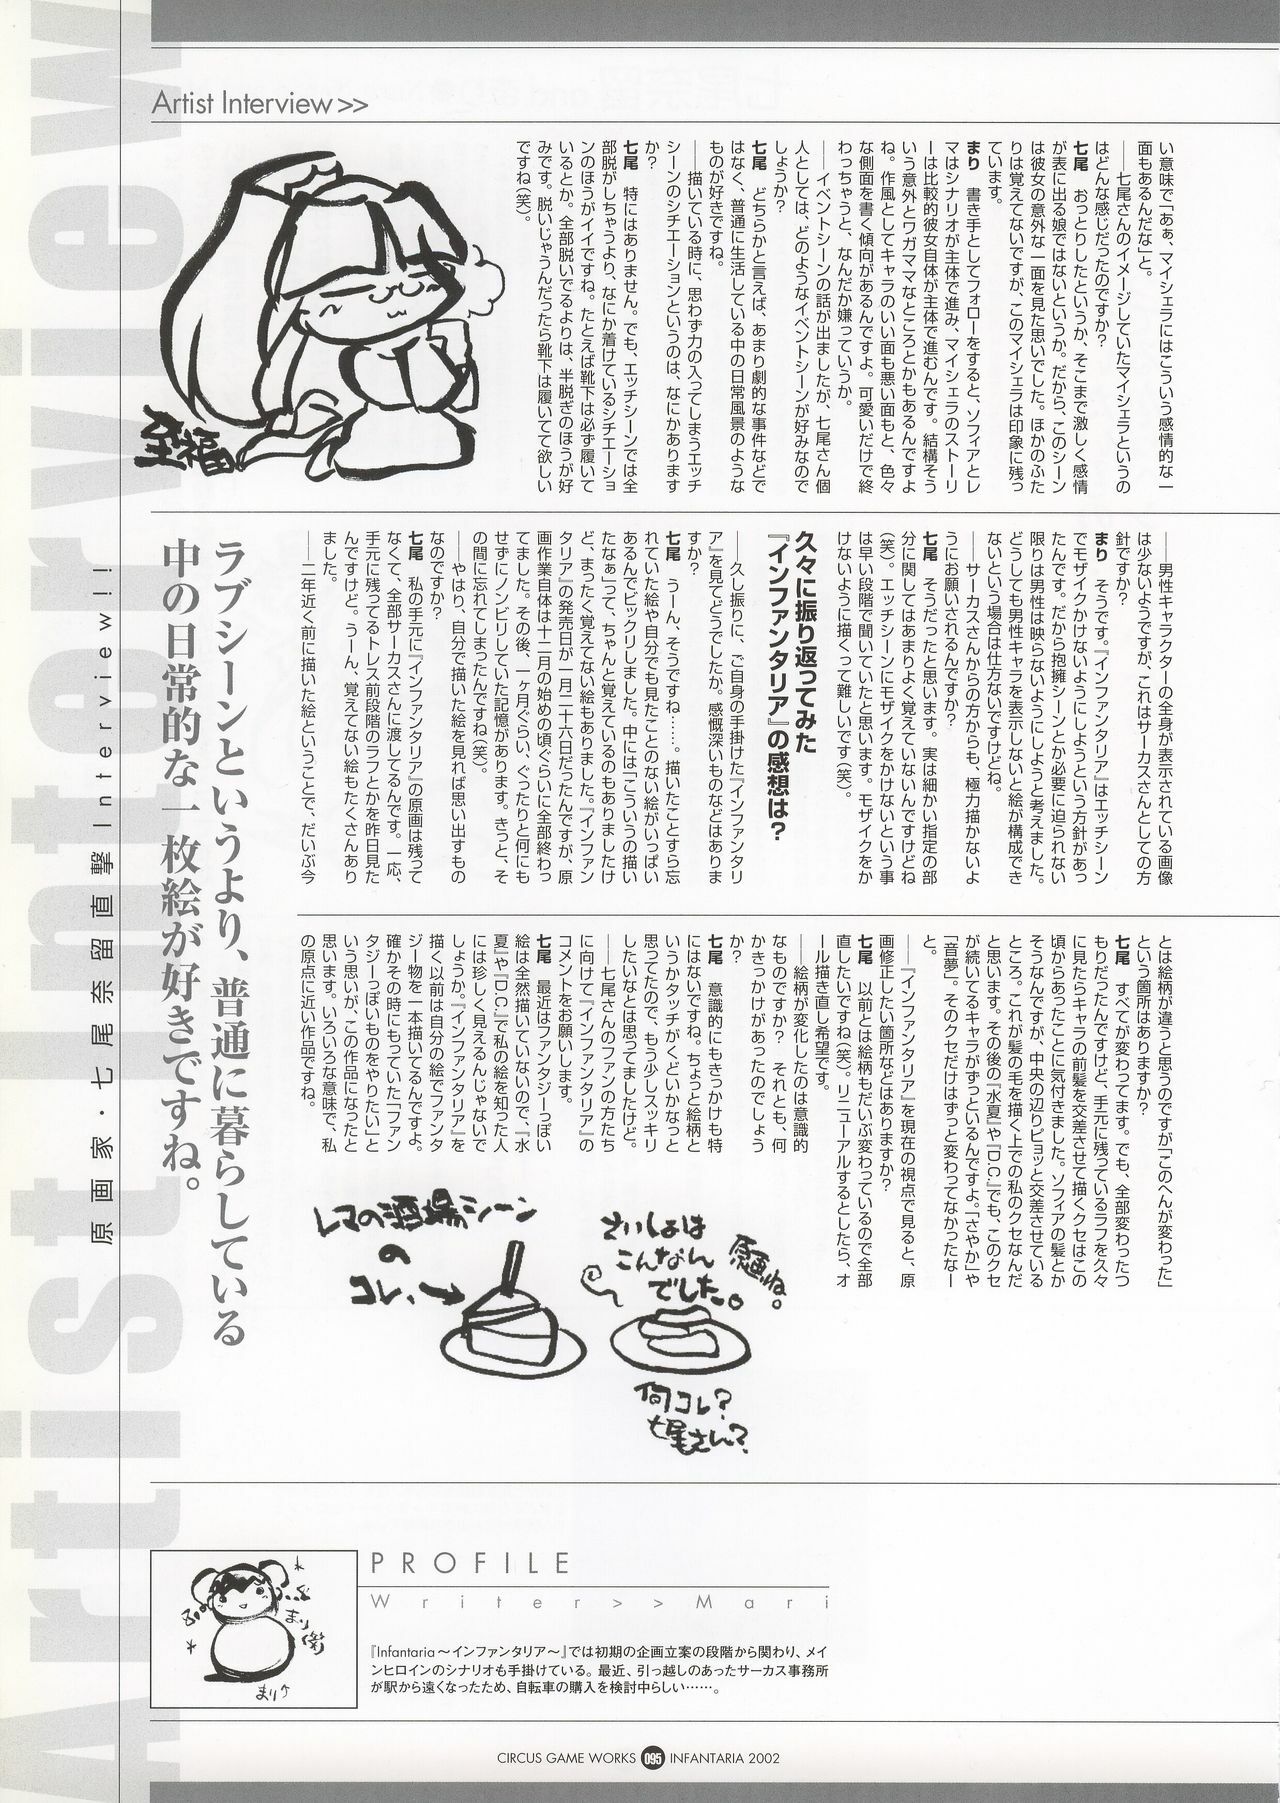 Artist Interview>>
い意味で「あぁ、マイシェラにはこういう感情的な一
面もあるんだな」と。
――七尾さんのイメージしていたマイシェラというの
はどんな感じだったのですか?
七尾　おっとりしたというか、そこまで激しく感情
が表に出る娘ではないというか。だから、このシーン
は彼女の意外な一面を見た思いでした。ほかのふた
りは覚えてないですが、このマイシェラは印象に残っ
ています。
まり　書き手としてフォローをすると、ソフィアとレ
マはシナリオが主体で進み、マイシェラのストーリ
ーは比較的彼女自体が主体で進むんです。結構そう
いう意外とワガママなところとかもあるんですよ
ね。作風としてキャラのいい面も悪い面もと、色々
な側面を書く傾向があるんですよ。可愛いだけで終
わっちゃうと、なんだか嫌っていうか。
――イベントシーンの話が出ましたが、七尾さん個
人としては、どのようなイベントシーンが好みなので
しょうか?
七尾　どちらかと言えば、あまり劇的な事件などで
はなく、普通に生活している中の日常風景のような
ものが好きですね。
――描いている時に、思わず力の入ってしまうエッチ
シーンのシチエーションというのは、なにかあります
か?
七尾　特にはありません。でも、エッチシーンでは全
部脱がしちゃうより、なにか着けているシチエーショ
ンのほうがイイですね。たとえば靴下は必ず履いて
いるとか。全部脱いでるよりは、半脱ぎのほうが好
みです。脱いじゃうんだったら靴下は履いてて欲しい
ですね(笑)。
至福
――男性キャラクターの全身が表示されている画像
は少ないようですが、これはサーカスさんとしての方
針ですか?
まり　そうです。『インファンタリア』はエッチシーン
でモザイクかけないようにしようという方針があっ
たんです。だから抱擁シーンとか必要に迫られない
限りは男性は映らないようにしようと考えました。
どうしても男性キャラを表示しないと絵が構成でき
ないという場合は仕方ないですけどね。
――サーカスさんからの方からも、極力描かないよ
うにお願いされるんですか?
七尾　そうだったと思います。実は細かい指定の部
分に関してはあまりよく覚えていないんですけどね
(笑)。エッチシーンにモザイクをかけないという事
は早い段階で聞いていたと思います。モザイクをか
けないように描くって難しいです(笑)。
久々に振り返ってみた
『インファンタリア』の感想は?
――久し振りに、ご自身の手掛けた『インファンタリ
ア』を見てどうでしたか。感慨深いものなどはありま
すか?
七尾　うーん、そうですね……。描いたことすら忘
れていた絵や自分でも見たことのない絵がいっぱい
あるんでビックリしました。中には「こういうの描い
たなぁ」って、ちゃんと覚えているのもありましたけ
ど、まったく覚えてない絵もありました。『インファン
タリア』の発売日が一月二十六日だったんですが、原
画作業自体は十二月の始めの頃ぐらいに全部終わっ
てました。その後、一ヶ月ぐらい、ぐったりと何にも
せずにノンビリしていた記憶があります。きっと、そ
の間に忘れてしまったんですね(笑)。
――やはり、自分で描いた絵を見れば思い出すもの
なのですか?
七尾　私の手元に『インファンタリア』の原画は残って
なくて、全部サーカスさんに渡してるんです。一応、
手元に残ってるトレス前段階のラフとかを昨日見た
んですけど。うーん、覚えてない絵もたくさんあり
ました。
――二年近く前に描いた絵ということで、だいぶ今
とは絵柄が違うと思うのですが「このへんが変わった」
という箇所はありますか?
七尾　すべてが変わってます。でも、全部変わったつ
もりだったんですけど、手元に残っているラフを久々
に見たらキャラの前髪を交差させて描くクセはこの
頃からあったことに気付きました。ソフィアの髪とか
そうなんですが、中央の辺りピョッと交差させている
ところ。これが髪の毛を描く上での私のクセなんだ
と思います。その後の『水夏』や『D.C.』でも、このクセ
が続いてるキャラがずっといるんですよ。「さやか」や
「音夢」。そのクセだけはずっと変わってなかったなー
と。
――『インファンタリア』を現在の視点で見ると、原
画修正したい箇所などはありますか?
七尾　以前とは絵柄もだいぶ変わっているので全部
直したいですね(笑)。リニューアルするとしたら、オ
ール描き直し希望です。
――絵柄が変化したのは意識的
なものですか?　それとも、何
かきっかけがあったのでしょう
か?
七尾　意識的にもきっかけも特
にはないですね。ちょっと絵柄と
いうかタッチがくどいかなっと
思ってたので、もう少しスッキリ
したいなとは思ってましたけど。
――七尾さんのファンの方たち
に向けて『インファンタリア』の
コメントをお願いします。
七尾　最近はファンタジーっぽい
絵は全然描いていないので、『水
夏』や『D.C.』で私の絵を知った人
には珍しく見えるんじゃないで
しょうか。『インファンタリア』を
描く以前は自分の絵でファンタ
ジー物を一本描いてるんですよ。
確かその時にもっていた「ファン
タジーっぽいものをやりたい」と
いう思いが、この作品になったと
思います。いろいろな意味で、私
の原点に近い作品ですね。
ラブシーンというより、普通に暮らしている
中の日常的な一枚絵が好きですね。
原画家・七尾奈留直撃Interview!!
Artist Interview
レマの酒場シーン
の
コレ、→
原画ね。
さいしょは
こんなん
でした。
何コレ?
七尾さん?
PROFILE
Writer>>Mari
『Infantaria～インファンタリア～』では初期の企画立案の段階から関わり、メイ
ンヒロインのシナリオも手掛けている。最近、引っ越しのあったサーカス事務所
が駅から遠くなったため、自転車の購入を検討中らしい……。
まり(笑)
CIRCUS GAME WORKS 095 INFANTARIA 2002